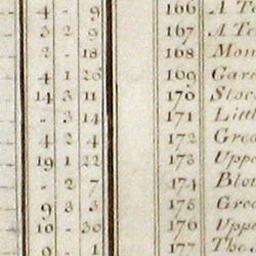 4 - 9 166 A To
3 2 9 167 A Te
2 - 18 168 Mon
4 1 26 169 Gar
14 3 11 170 Stoc
- 3 14 171 Littl
4 2 4 172 Grea
19 1 22 173 Uppe
- 2 7 174 Blo
9 3 3 175 Gre
10 - 30 176 Uppe
9 - 1 177 The